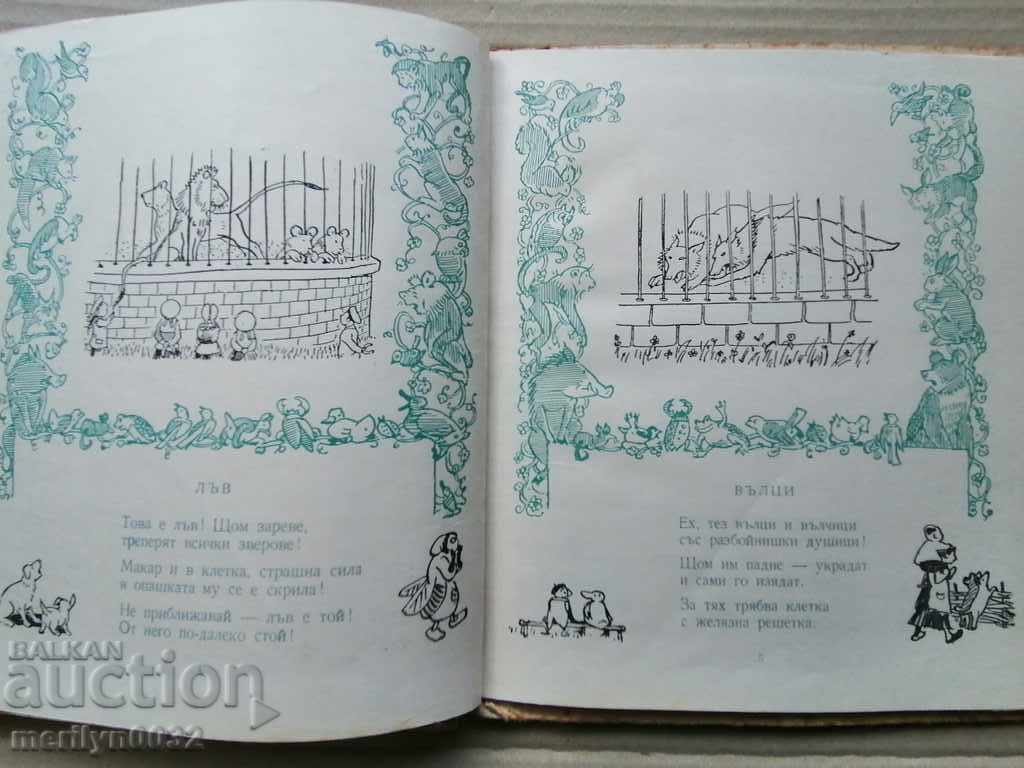 ЛЪВ
Това е лъв! Щом зареве,
треперят всички зверове!
Макар и в клетка, страшна сила
в опашката му се е скрила!
Не приближавай — лъв е той!
От него по-далеко стой!
ВЪЛЦИ
Ех, тез вълци и вълчици
със разбойнишки душици!
Щом им падне — украдат
и сами го изядат.
За тях трябва клетка
с желязна решетка.
5
BALKAN
auction
merilyn0032